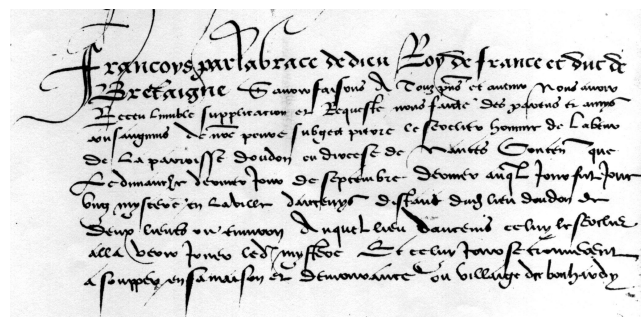 Francoys par la grace de dieu Roy de france et duc de
Bretaigne Savoir faisons A Tous pns et avenir Nous avoir
Receu lumble supplication et Requeste nous faicte des parens et amys
consanguins de nre povre subgect pierre le feoclier homme de labeur
de La parroisse doudon ou diocese de Nantes Conten que
Le dimanche dernier Jour de septembre dernier auql Jour fut Joue
Ung mystere en la ville dancenys distant dud lieu doudon de
deux lieues ou environ Auquel lieu dancenis celuy le feoclier
alla veoir Jouer led mystere Et celuy Jour se trouverent
a soupper en sa maison et demourance ou villaige de bonhardy